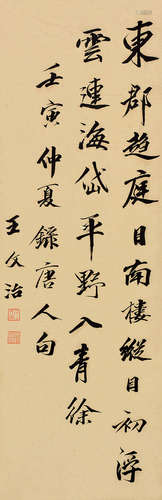 東郡趍庭日南樓縱目初浮
雲連海岱平野入青徐
壬寅仲夏錄唐人句
王文治